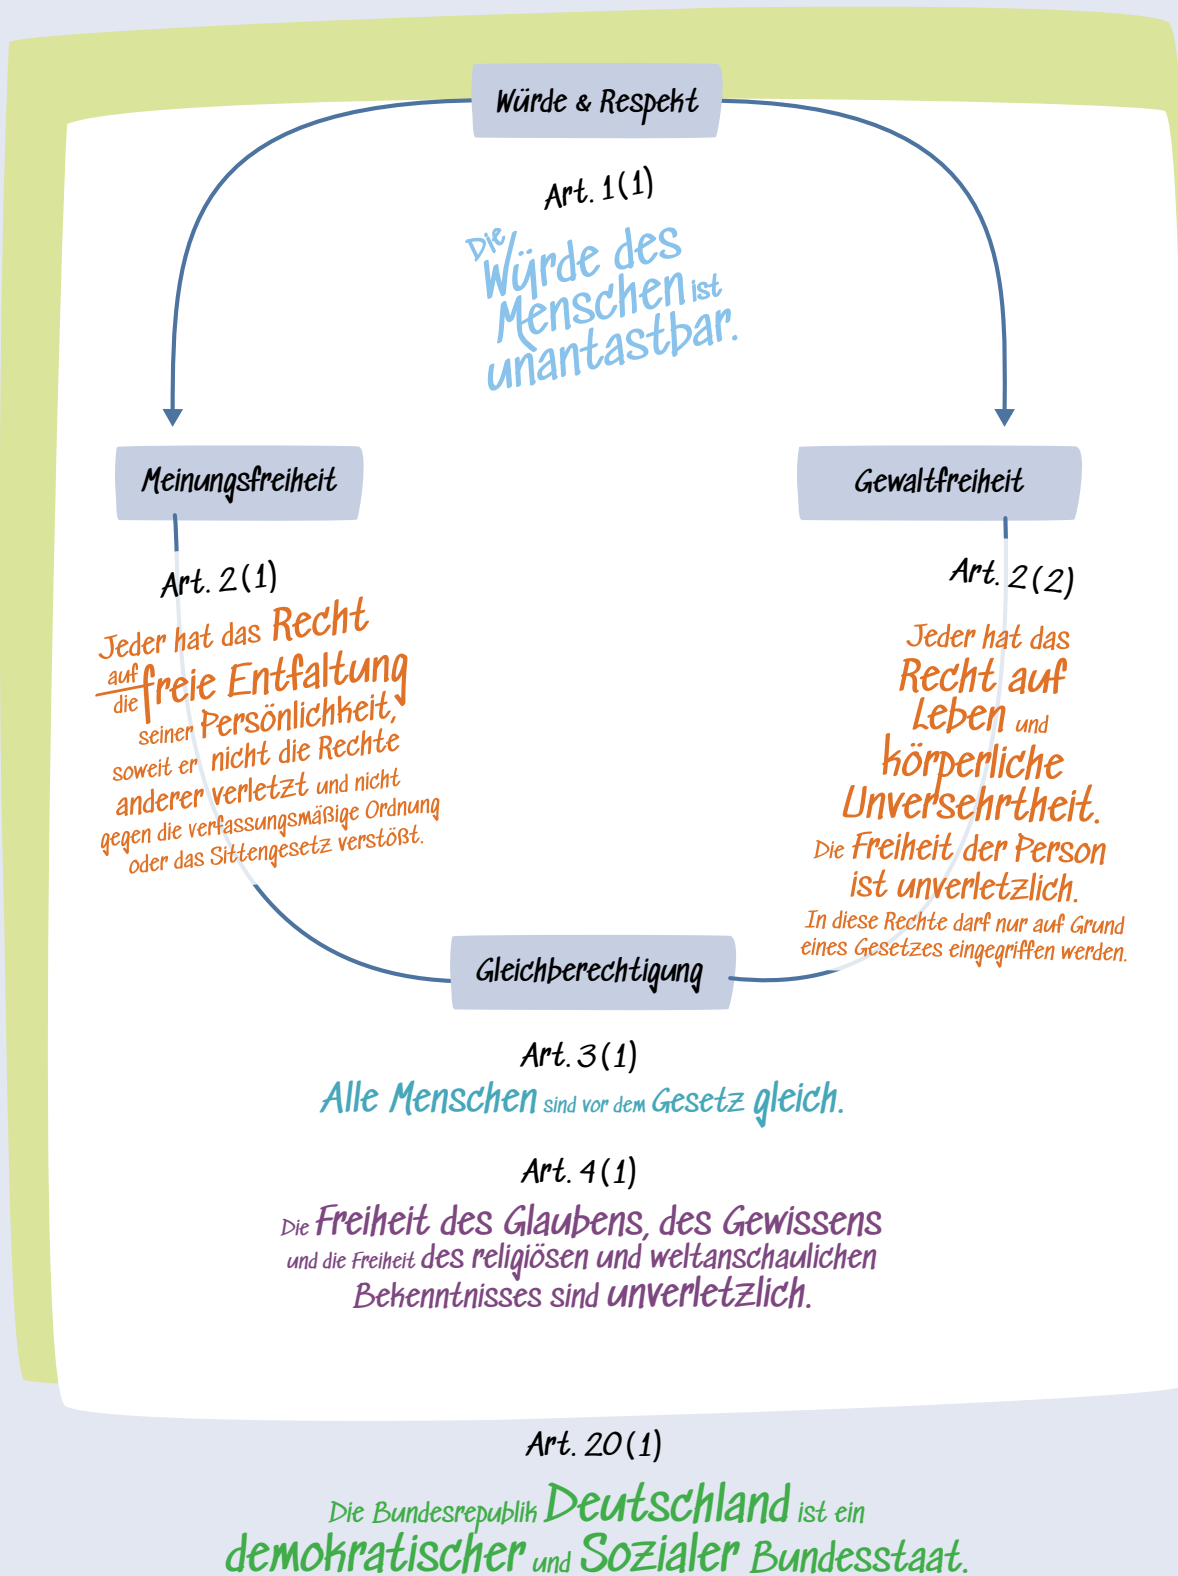 Würde & Respekt
Art. 1(1)
Die
Würde des
Menschen ist
unantastbar.
Meinungsfreiheit
Art. 2(1)
Jeder hat das Recht
auf
die freie Entfaltung
seiner Persönlichkeit,
soweit er nicht die Rechte
anderer verletzt und nicht
gegen die verfassungsmäßige Ordnung
oder das Sittengesetz verstößt.
Gewaltfreiheit
Art. 2(2)
Jeder hat das
Recht auf
Leben und
körperliche
Unversehrtheit.
Die Freiheit der Person
ist unverletzlich.
In diese Rechte darf nur auf Grund
eines Gesetzes eingegriffen werden.
Gleichberechtigung
Art. 3(1)
Alle Menschen sind vor dem Gesetz gleich.
Art. 4(1)
Die Freiheit des Glaubens, des Gewissens
und die Freiheit des religiösen und weltanschaulichen
Bekenntnisses sind unverletzlich.
Art. 20(1)
Die Bundesrepublik Deutschland ist ein
demokratischer und Sozialer Bundesstaat.